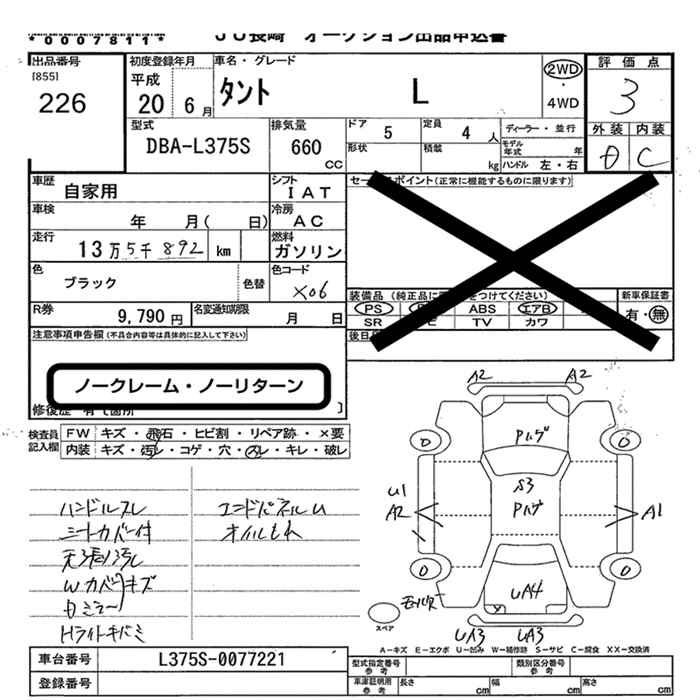 *0007811* ＪＵ長崎 オークション出品申込書
出品番号
[855]
226
初度登録年月
平成
20 6月
車名・グレード
タント L
2WD
・
4WD
評価点
3
外装 内装
C
型式
DBA-L375S
排気量
660
CC
ドア 5
定員 4 人
形状
積載 kg
ディーラー・並行
モデル年式 年
ハンドル 左・右
車歴 自家用
シフト IAT
車検 年 月( 日)
冷房 AC
走行 13万5千892 km
燃料 ガソリン
色 ブラック 色替
色コード X06
R券 9,790円
名変通知期限 月 日
ポイント(正常に機能するものに限ります)
装備品 (純正品に つけてください)
PS ABS エアB
SR TV カワ
新車保証書
有・無
後日
注意事項申告欄 (不具合内容等は具体的に記入して下さい)
ノークレーム・ノーリターン
修復歴 有 て箇所 ]
検査員記入欄
FW キズ・飛石・ヒビ割・リペア跡・×要
内装 キズ・汚レ・コゲ・穴・スレ・キレ・破レ
ハンドルスレ
シートカバー付
天張汚レ
Wカバーキズ
Hライトキバミ
エンドパネルU
オイルもれ
A2 A2
0 0
Pハゲ
S3
Pハゲ
U1
A2
A1
0 0
UA4
UA3 UA3
スペア
A－キズ E－エクボ U－凹み W－補修跡 S－サビ C－腐食 XX－交換済
車台番号 L375S-0077221
登録番号
型式指定番号
参考
類別区分番号
参考
車庫証明用
参考
長さ cm
幅 cm
高さ cm